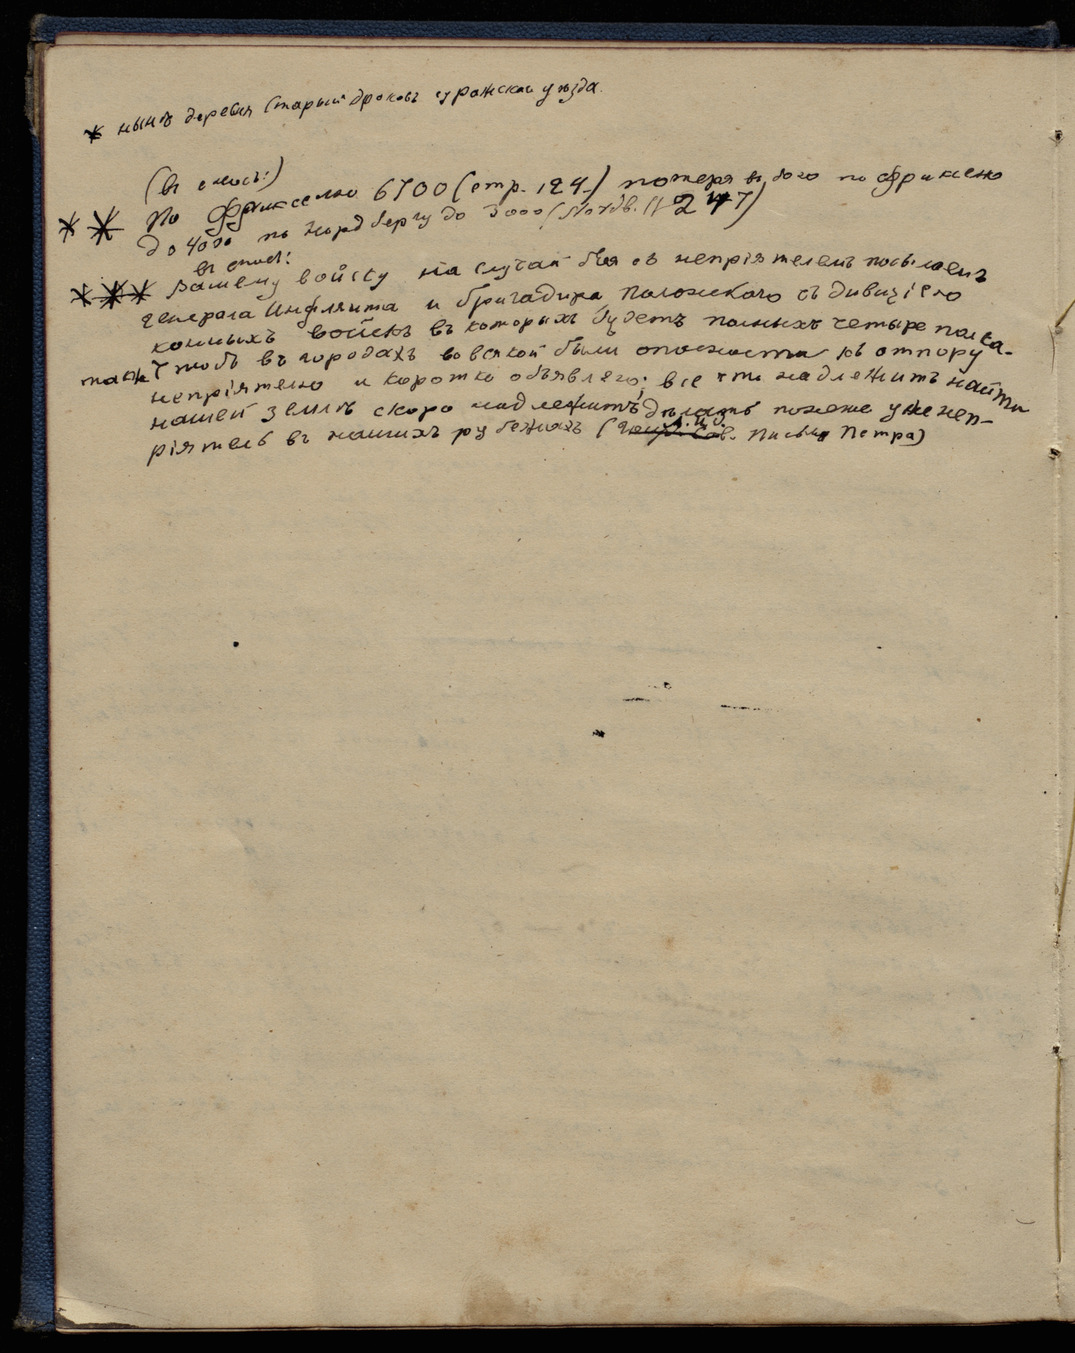 * нынѣ деревня Старый Дроковъ суражскаго уѣзда.
(въ сноск:)
** По Фрикселю 6700 (стр. 124.) потеря въ
до 4000 по Нордбергу до 3000 (Nordb. II 247)
въ сноск:
*** Вашему войску на случай боя съ непріятелемъ посылаемъ
генерала Инфлянта и бригадира Полонского съ дивизіею
конныхъ войскъ въ которыхъ будетъ полныхъ четыре полка.
также чтобъ въ городахъ во всякой были опасности къ отпору
непріятелю и коротко объявляю: все что надлежитъ найти
нашей землѣ скоро надлежитъ дѣлать понеже уже неп-
ріятель въ нашихъ рубежахъ ( Письма Петра)